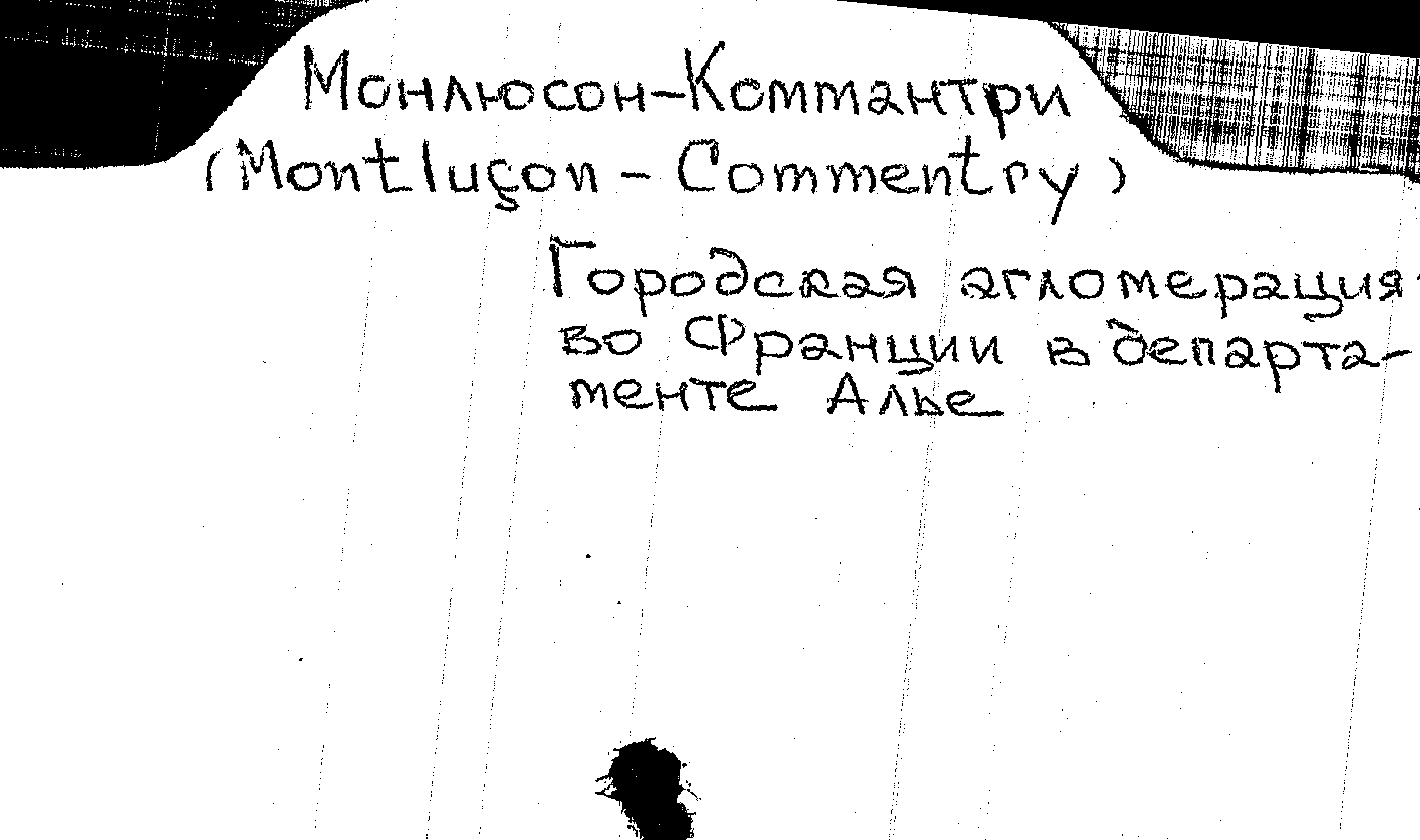 Монлюсон-Коммантри
(Montluçon - Commentry)
Городская агломерация
во Франции в департа-
менте Алье